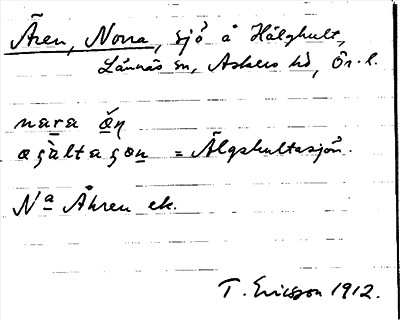 Ären, Norra, sjö å Hälghult,
Lännäs sn, Askers hd, Ör. l.
nara æ̆ɳ
= Älgshultasjön.
Nª Åhren ek.
T. Ericsson 1912.